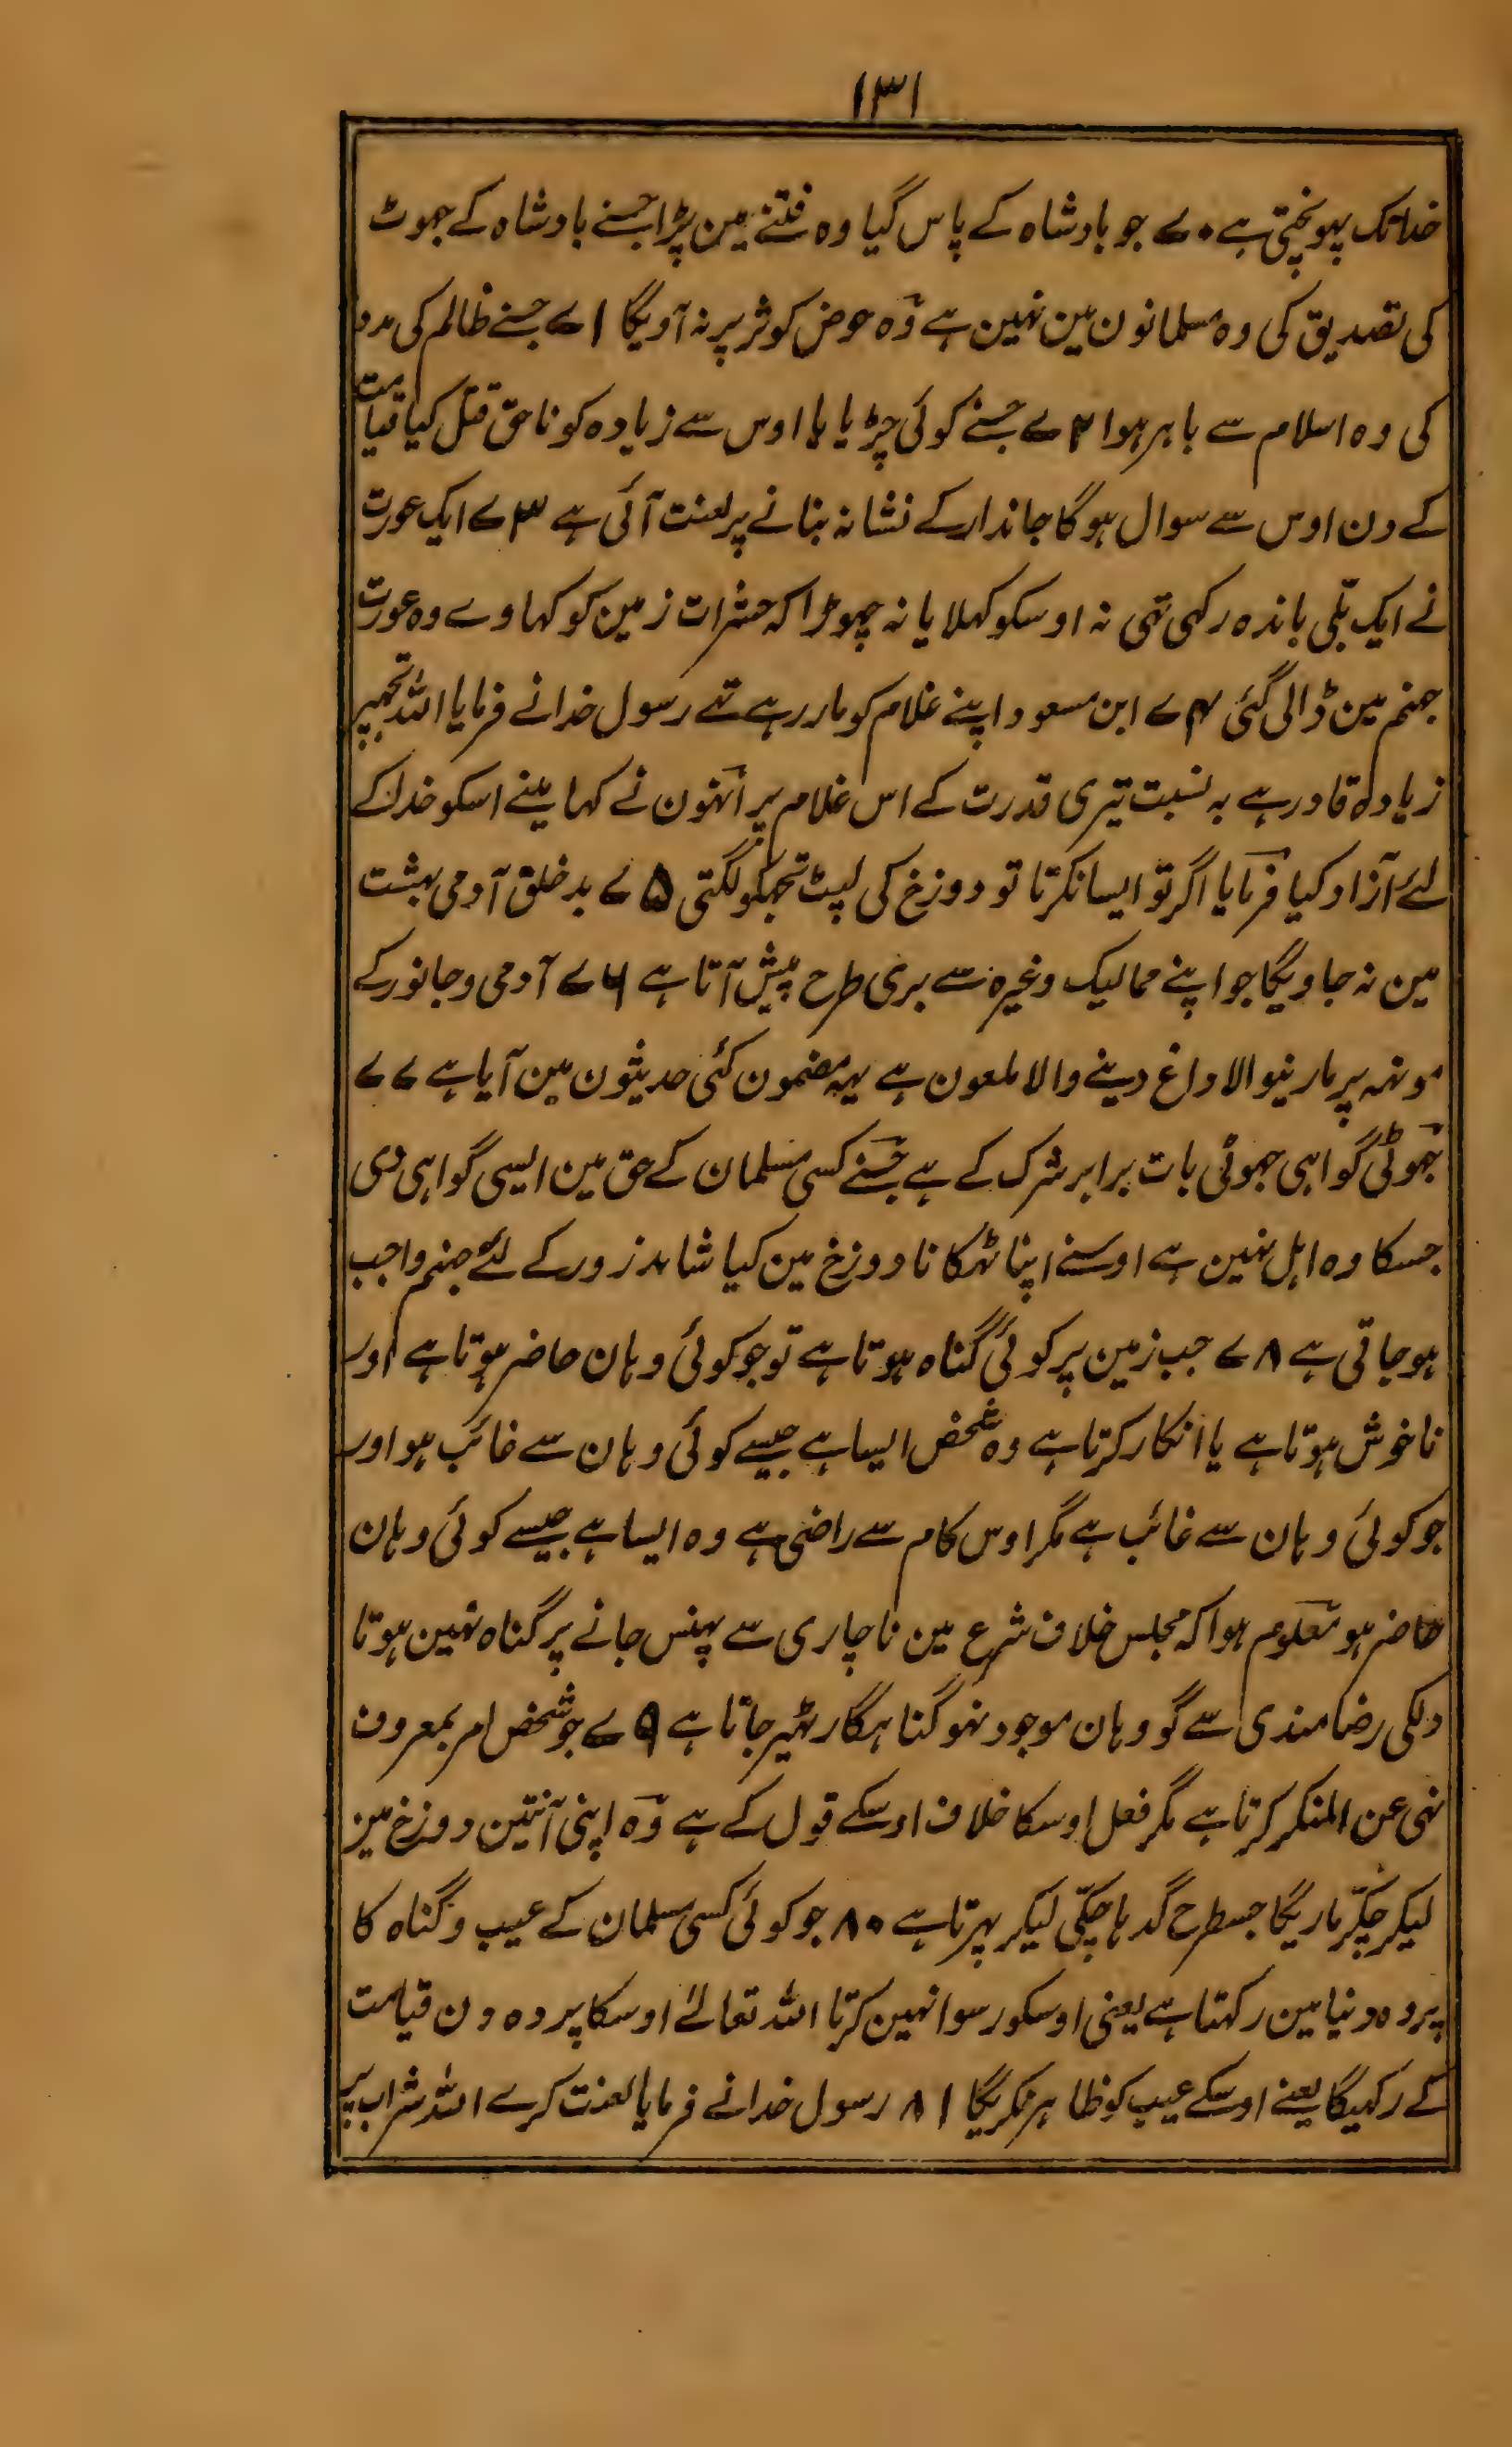 ۱۳۱
خداتک پہونچتی ہے ۷۰ جو بادشاہ کے پاس گیا وہ فتنے مین پڑا جسنے بادشاہ کے جھوٹ
کی تصدیق کی وہ مسلمانون مین نہین ہے وہ حوض کوثر پر نہ آویگا ۷۱ جسنے ظالم کی مدد
کی وہ اسلام سے باہر ہوا ۷۲ جسنے کوئی چڑیا یا اوس سے زیادہ کو ناحق قتل کیا قیامت
کے دن اوس سے سوال ہوگا جاندار کے نشانہ بنانے پر لعنت آئی ہے ۷۳ ایک عورت
نے ایک بلّی باندہ رکہی تہی نہ اوسکو کہلایا نہ چہوڑا کہ حشرات زمین کو کہاوے وہ عورت
جہنم مین ڈالی گئی ۷۴ ابن مسعود اپنے غلام کو مار رہے تھے رسول خدا نے فرمایا اللہ تجہپر
زیادہ قادر ہے بہ نسبت تیری قدرت کے اس غلام پر اُنہون نے کہا مینے اسکو خدا کے
لئے آزاد کیا فرمایا اگر تو ایسا نکرتا تو دوزخ کی لپٹ تجہکو لگتی ۷۵ بدخلق آدمی بہشت
مین نہ جاویگا جو اپنے ممالیک وغیرہ سے بری طرح پیش آتا ہے ۷۶ آدمی و جانور کے
مونہہ پر مارنیوالا داغ دینے والا ملعون ہے یہہ مضمون کئی حدیثون مین آیا ہے ۷۷
جھوٹی گواہی جہوٹی بات برابر شرک کے ہے جسنے کسی مسلمان کے حق مین ایسی گواہی دی
جسکا وہ اہل نہین ہے اوسنے اپنا ٹہکانا دوزخ مین کیا شاہد زور کے لئے جہنم واجب
ہو جاتی ہے ۷۸ جب زمین پر کوئی گناہ ہوتا ہے تو جو کوئی وہان حاضر ہوتا ہے اور
ناخوش ہوتا ہے یا انکار کرتا ہے وہ شخص ایسا ہے جیسے کوئی وہان سے غائب ہو اور
جو کوئی وہان سے غائب ہے مگر اوس کام سے راضی ہے وہ ایسا ہے جیسے کوئی وہان
حاضر ہو معلوم ہوا کہ مجلس خلاف شرع مین ناچاری سے پہنس جانے پر گناہ نہین ہوتا
دلکی رضامندی سے گو وہان موجود نہو گناہگار ٹہیر جاتا ہے ۷۹ جو شخص امر بمعروف
نہی عن المنکر کرتا ہے مگر فعل اوسکا خلاف اوسکے قول کے ہے وہ اپنی آنتین دوزخ مین
لیکر چکّر ماریگا جسطرح گدہا چکّی لیکر پہرتا ہے ۸۰ جو کوئی کسی مسلمان کے عیب و گناہ کا
پردہ دنیا مین رکہتا ہے یعنی اوسکو رسوا نہین کرتا اللہ تعالےٰ اوسکا پردہ دن قیامت
کے رکہیگا یعنے اوسکے عیب کو ظاہر نکریگا ۸۱ رسول خدا نے فرمایا لعنت کرے اللہ شراب پر